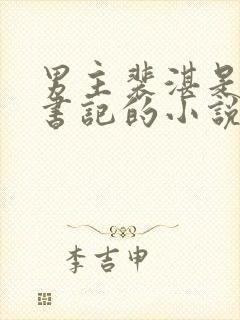 男主裴湛是
書記的小説
李吉申